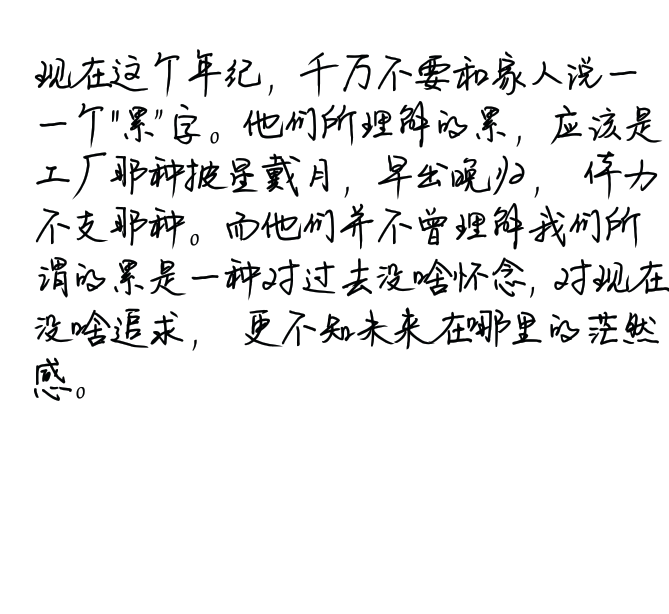 现在这个年纪，千万不要和家人说一
一个"累"字。他们所理解的累，应该是
工厂那种披星戴月，早出晚归，体力
不支那种。而他们并不曾理解我们所
谓的累是一种对过去没啥怀念，对现在
没啥追求，更不知未来在哪里的茫然
感。